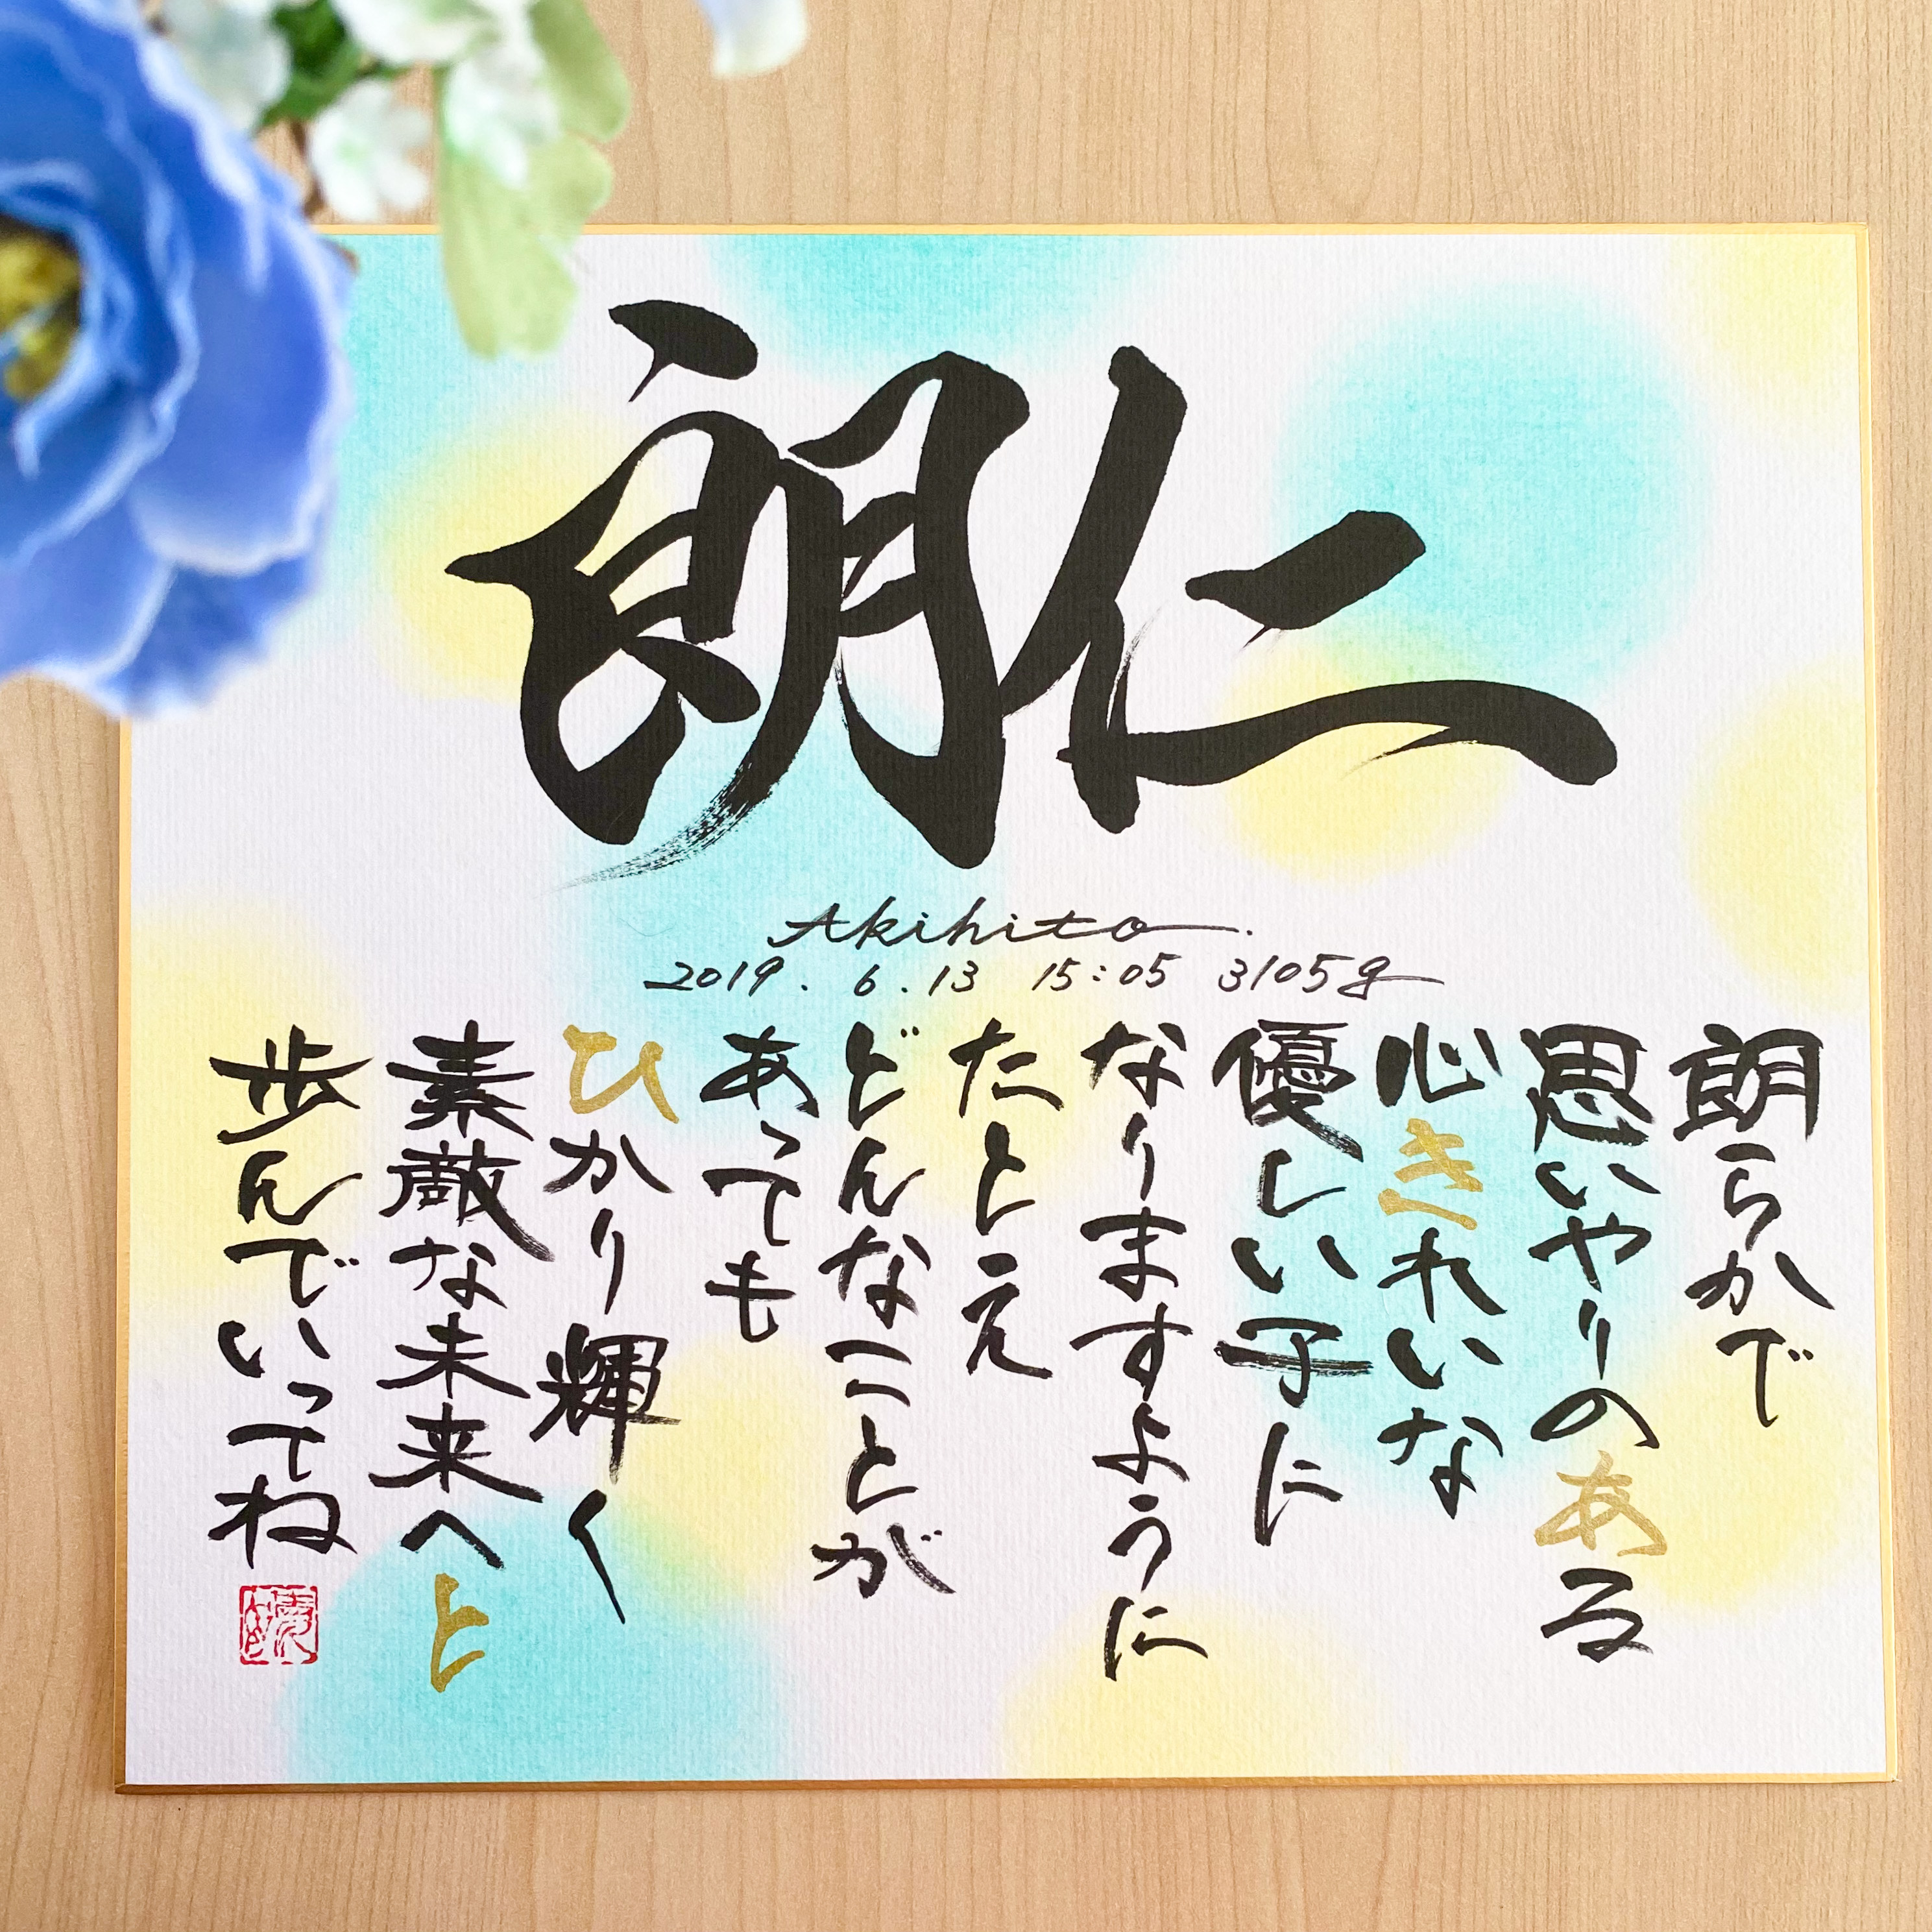 朗仁
Akihito
2019. 6.13 15:05 3105g
朗らかで
思いやりのある
心きれいな
優しい子に
なりますように
たとえ
どんなことが
あっても
ひかり輝く
素敵な未来へと
歩んでいってね